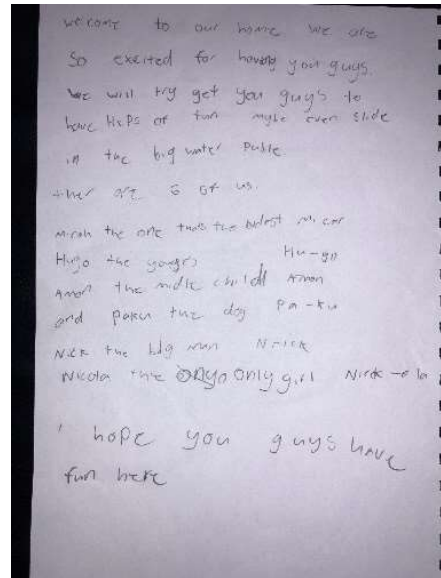 welcome to our home we are
So excited for having you guys.
We will try get you guys to
have HePs of fun mybe even slide
in the big water Pudle.
ther are 6 of us.
Micah the one thats the oldest Mi car
Hugo the youngis Hu-go
Amon the midle child Amon
and paku the dog Pa-ku
Nick the big man N-ick
Nicola the only girl Nick-o la
I hope you guys have
fun here